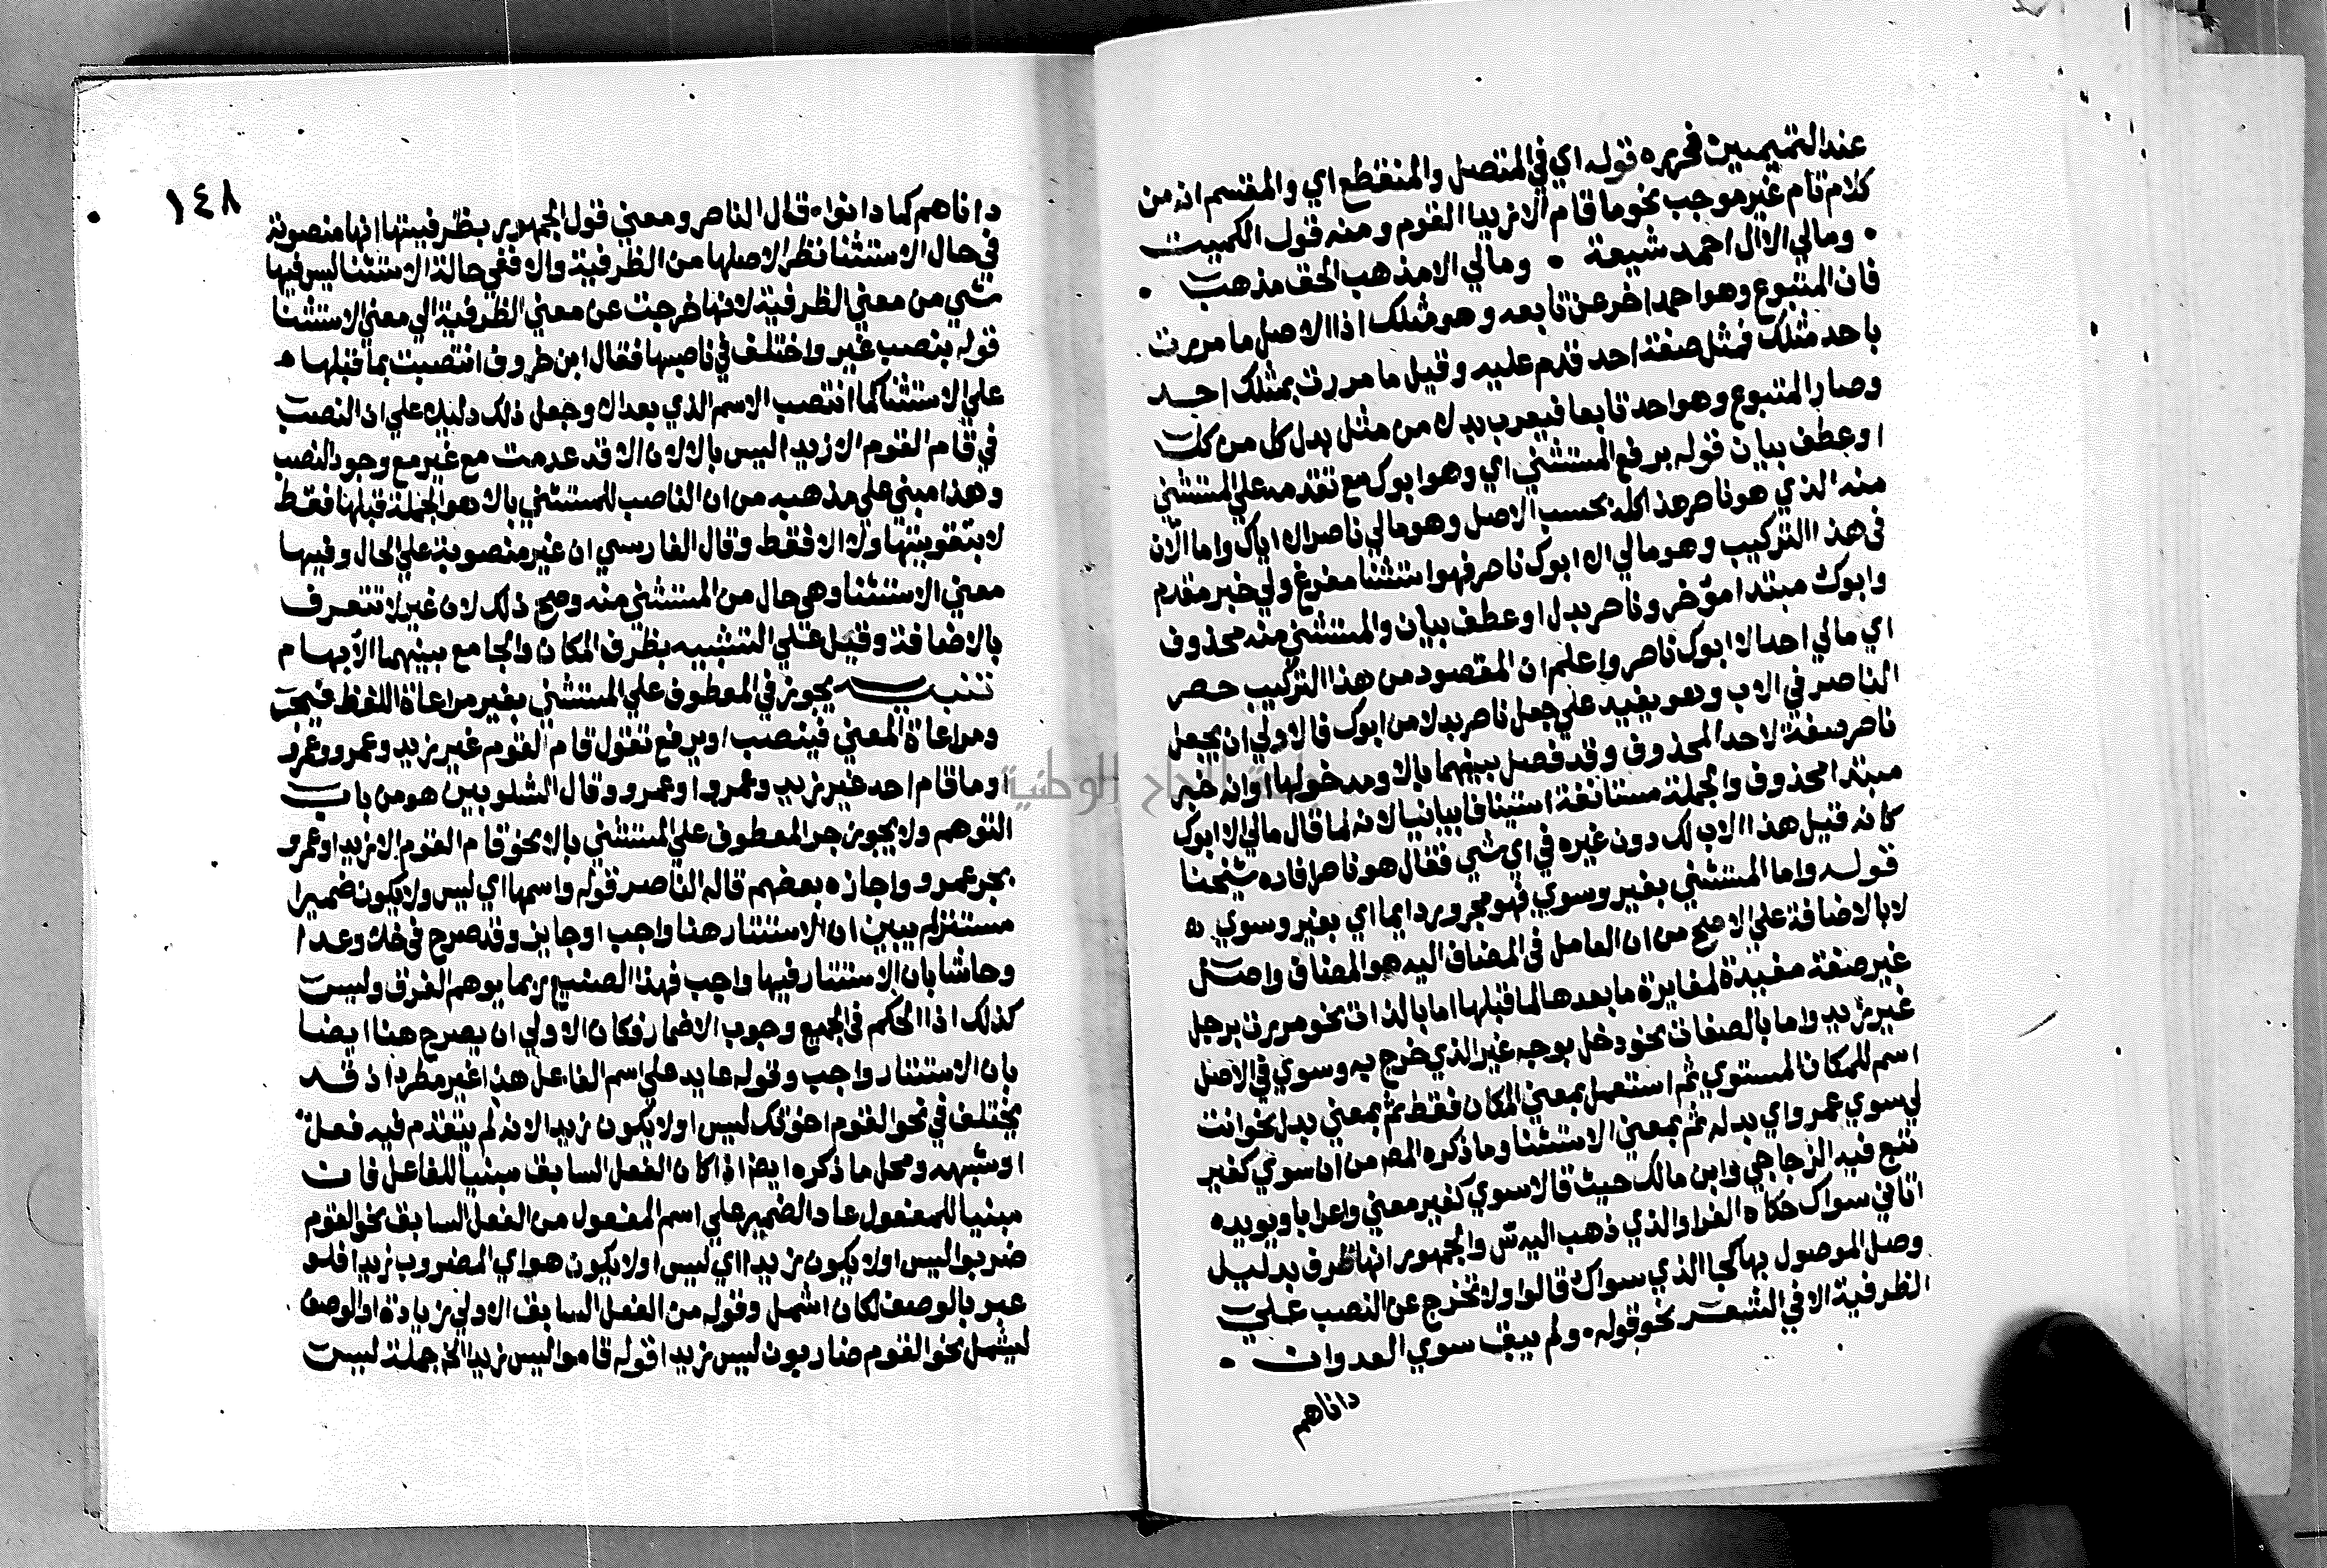 عند التميميين فحرره قوله اي في المتصل والمنقطع اي والمقسم انه من
كلام تام غير موجب نحو ما قام الا زيدا القوم ومنه قول الكميت
• ومالي الا ال احمد شيعة • ومالي الا مذهب الحق مذهب •
فان المتبوع وهو احد اخر عن تابعه وهو مثلك اذ الاصل ما مررت
باحد مثلك فمثل صفة احد قدم عليه وقيل ما مررت بمثلك احد
وصار المتبوع وهو احد تابعا فيعرب بدل من مثل بدل كل من كل
او عطف بيان قوله برفع المستثني اي وهو ابوك مع تقدمه علي المستثني
منه الذي هو ناصر هذا كله بحسب الاصل وهو مالي ناصر الا اباك واما الآن
في هذا التركيب وهو مالي الا ابوك ناصر فهو استثنا مفرغ ولي خبر مقدم
وابوك مبتدا مؤخر وناصر بدل او عطف بيان والمستثني منه محذوف
اي مالي احد الا ابوك ناصر واعلم ان المقصود من هذا التركيب حصر
الناصر في الاب وهو يفيد علي جعل ناصر بدلا من ابوك فالاولي ان يجعل
ناصر صفة لاحد المحذوف وقد فصل بينهما بالا ومدخولها وانه خبر
مبتدا محذوف والجملة مستانفة استينافا بيانيا لانه لما قال مالي الا ابوك
كانه قيل هذا الاب لك دون غيره في اي شي فقال هو ناصر افاده شيخنا
قوله واما المستثني بغير وسوي فهو مجرور دايما اي بغير وسوي
لا بالاضافة علي الاصح من ان العامل في المضاف اليه هو المضاف واصل
غير صفة مفيدة لمغايرة ما بعدها لما قبلها اما بالذات نحو مررت برجل
غير زيد واما بالصفات نحو دخل بوجه غير الذي خرج به وسوي في الاصل
اسم للمكان المستوي ثم استعمل بمعني المكان فقط ثم بمعني بدل نحو انت
لي سوي عمرو اي بدله ثم بمعني الاستثنا وما ذكره المص من ان سوي كغير
تبع فيه الزجاجي وابن مالك حيث قالا سوي كغير معني واعرابا ويويده
اتاني سواك حكاه الفرا والذي ذهب اليه س والجمهور انها ظرف بدليل
وصل الموصول بها كجا الذي سواك قالوا ولا تخرج عن النصب علي
الظرفية الا في الشعر نحو قوله • ولم يبق سوي العدوان •
داناهم
١٤٨
داناهم كما دانوا • قال الناصر ومعني قول الجمهور بظرفيتها انها منصوبة
في حال الاستثنا نظرا لاصلها من الظرفية والا ففي حالة الاستثنا ليس فيها
شي من معني الظرفية لانها خرجت عن معني الظرفية الي معني الاستثنا
قوله بنصب غير واختلف في ناصبها فقال ابن خروف انتصبت بما قبلها
علي الاستثنا كما انتصب الاسم الذي بعد الا وجعل ذلك دليلا علي ان النصب
في قام القوم الا زيدا ليس بالا لان الا قد عدمت مع غير مع وجود النصب
وهذا مبني علي مذهبه من ان الناصب للمستثني بالا هو الجملة قبلها فقط
لا بتقويتها ولا الا فقط وقال الفارسي ان غير منصوبة علي الحال وفيها
معني الاستثنا وهي حال من المستثني منه وصح ذلك لان غير لا تتعرف
بالاضافة وقيل علي التشبيه بظرف المكان والجامع بينهما الابهام
تنبيه يجوز في المعطوف علي المستثني بغير مراعاة اللفظ فيجر
ومراعاة المعني فينصب او يرفع تقول قام القوم غير زيد وعمرو وعمرو
او ما قام احد غير زيد وعمرو او عمرو وقال الشلوبين هو من باب
التوهم ولا يجوز جر المعطوف علي المستثني بالا نحو قام القوم الا زيدا وعمرو
بجر عمرو واجازه بعضهم قاله الناصر قوله واسمها اي ليس ولا يكون ضميرا
مستتر لم يبين ان الاستتار هنا واجب او جايز وقد صرح في خلا وعدا
وحاشا بان الاستتار فيها واجب فهذا الصنيع ربما يوهم الفرق وليس
كذلك اذ الحكم في الجميع وجوب الاضمار فكان الاولي ان يصرح هنا ايضا
بان الاستتار واجب وقوله عايد علي اسم الفاعل هذا غير مطرد اذ قد
يختلف في نحو القوم اخوتك ليس او لا يكون زيدا لانه لم يتقدم فيه فعل
او شبهه ومحل ما ذكره ايضا اذا كان الفعل السابق مبنيا للفاعل فان
مبنيا للمفعول عاد الضمير علي اسم المفعول من الفعل السابق نحو القوم
ضربوا ليس او لا يكون زيدا اي ليس او لا يكون هو اي المضروب زيدا فلو
عبر بالوصف لكان اشمل وقوله من الفعل السابق الاولي زيادة او الوصف
ليشمل نحو القوم ضاربون ليس زيدا قوله قاموا ليس زيدا الخ جملة ليس